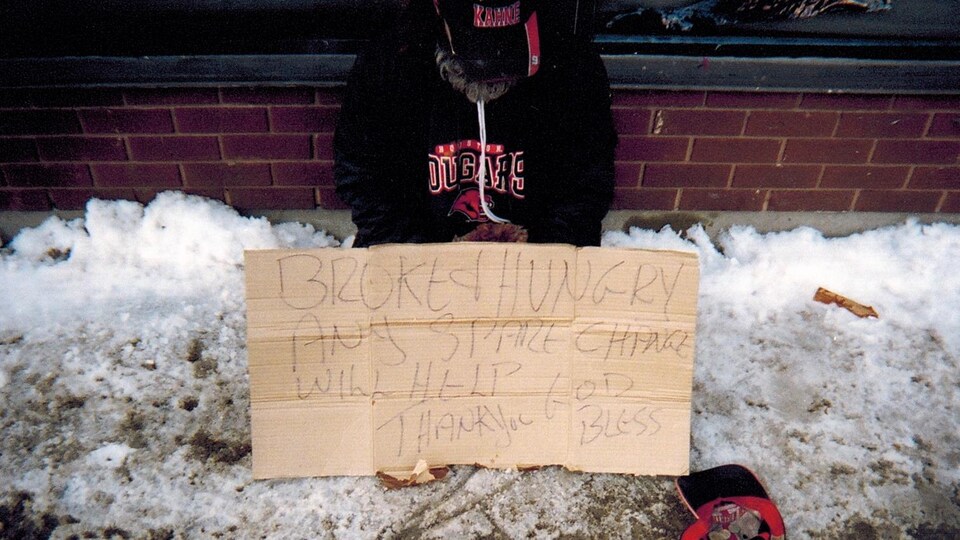 KAHNE
9
HOUSTON
COUGARS
BROKE & HUNGRY
ANY SPARE CHANGE
WILL HELP GOD
THANK you BLESS